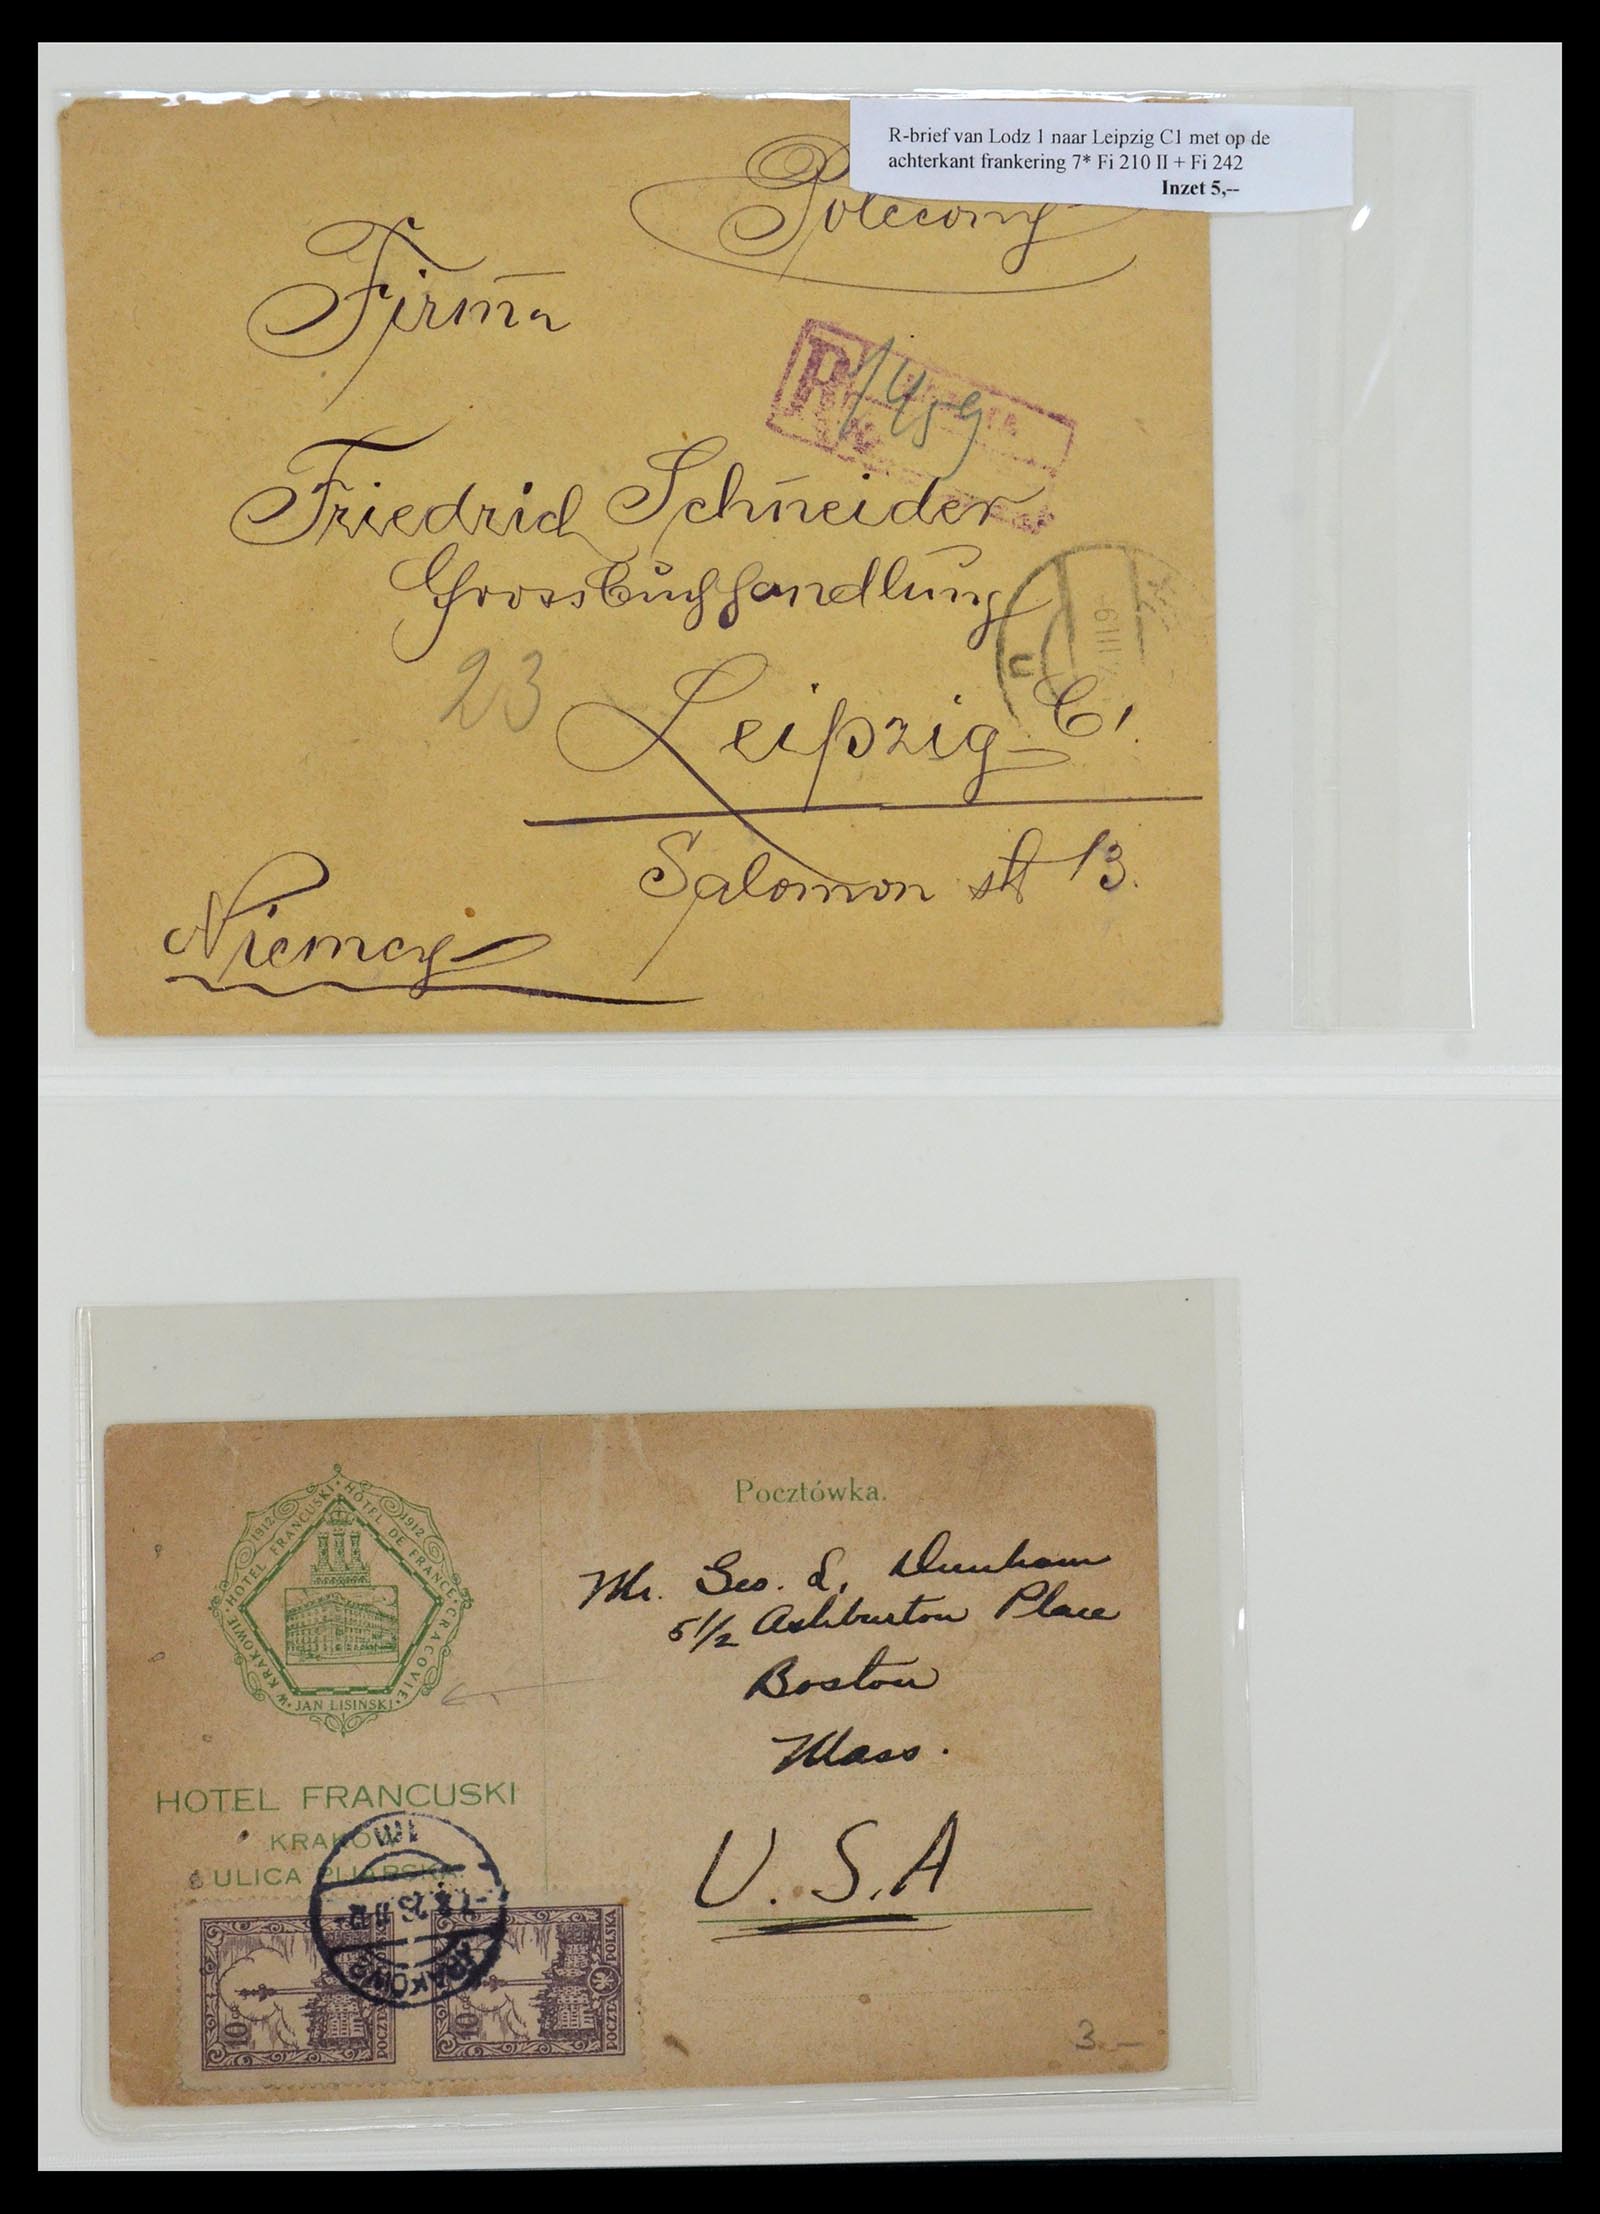 R-brief van Lodz 1 naar Leipzig C1 met op de
achterkant frankering 7* Fi 210 II + Fi 242
Inzet 5,--
Polecony
Firma
R
1459
Friedrich Schneider
Grossbuchhandlung
6 III
23
Leipzig C1.
Salomon str 13.
Niemcy
Pocztówka.
1912 1912
W KRAKOWIE · HOTEL FRANCUSKI · HOTEL DE FRANCE · CRACOVIE ·
JAN LISIŃSKI
Mr. Geo. L. Dunham
5 1/2 Ashburton Place
Boston
Mass.
U.S.A
HOTEL FRANCUSKI
KRAKÓW
ULICA PIJARSKA
KRAKÓW 2
10 GR
POCZTA
10 GR
POCZTA POLSKA
3.—